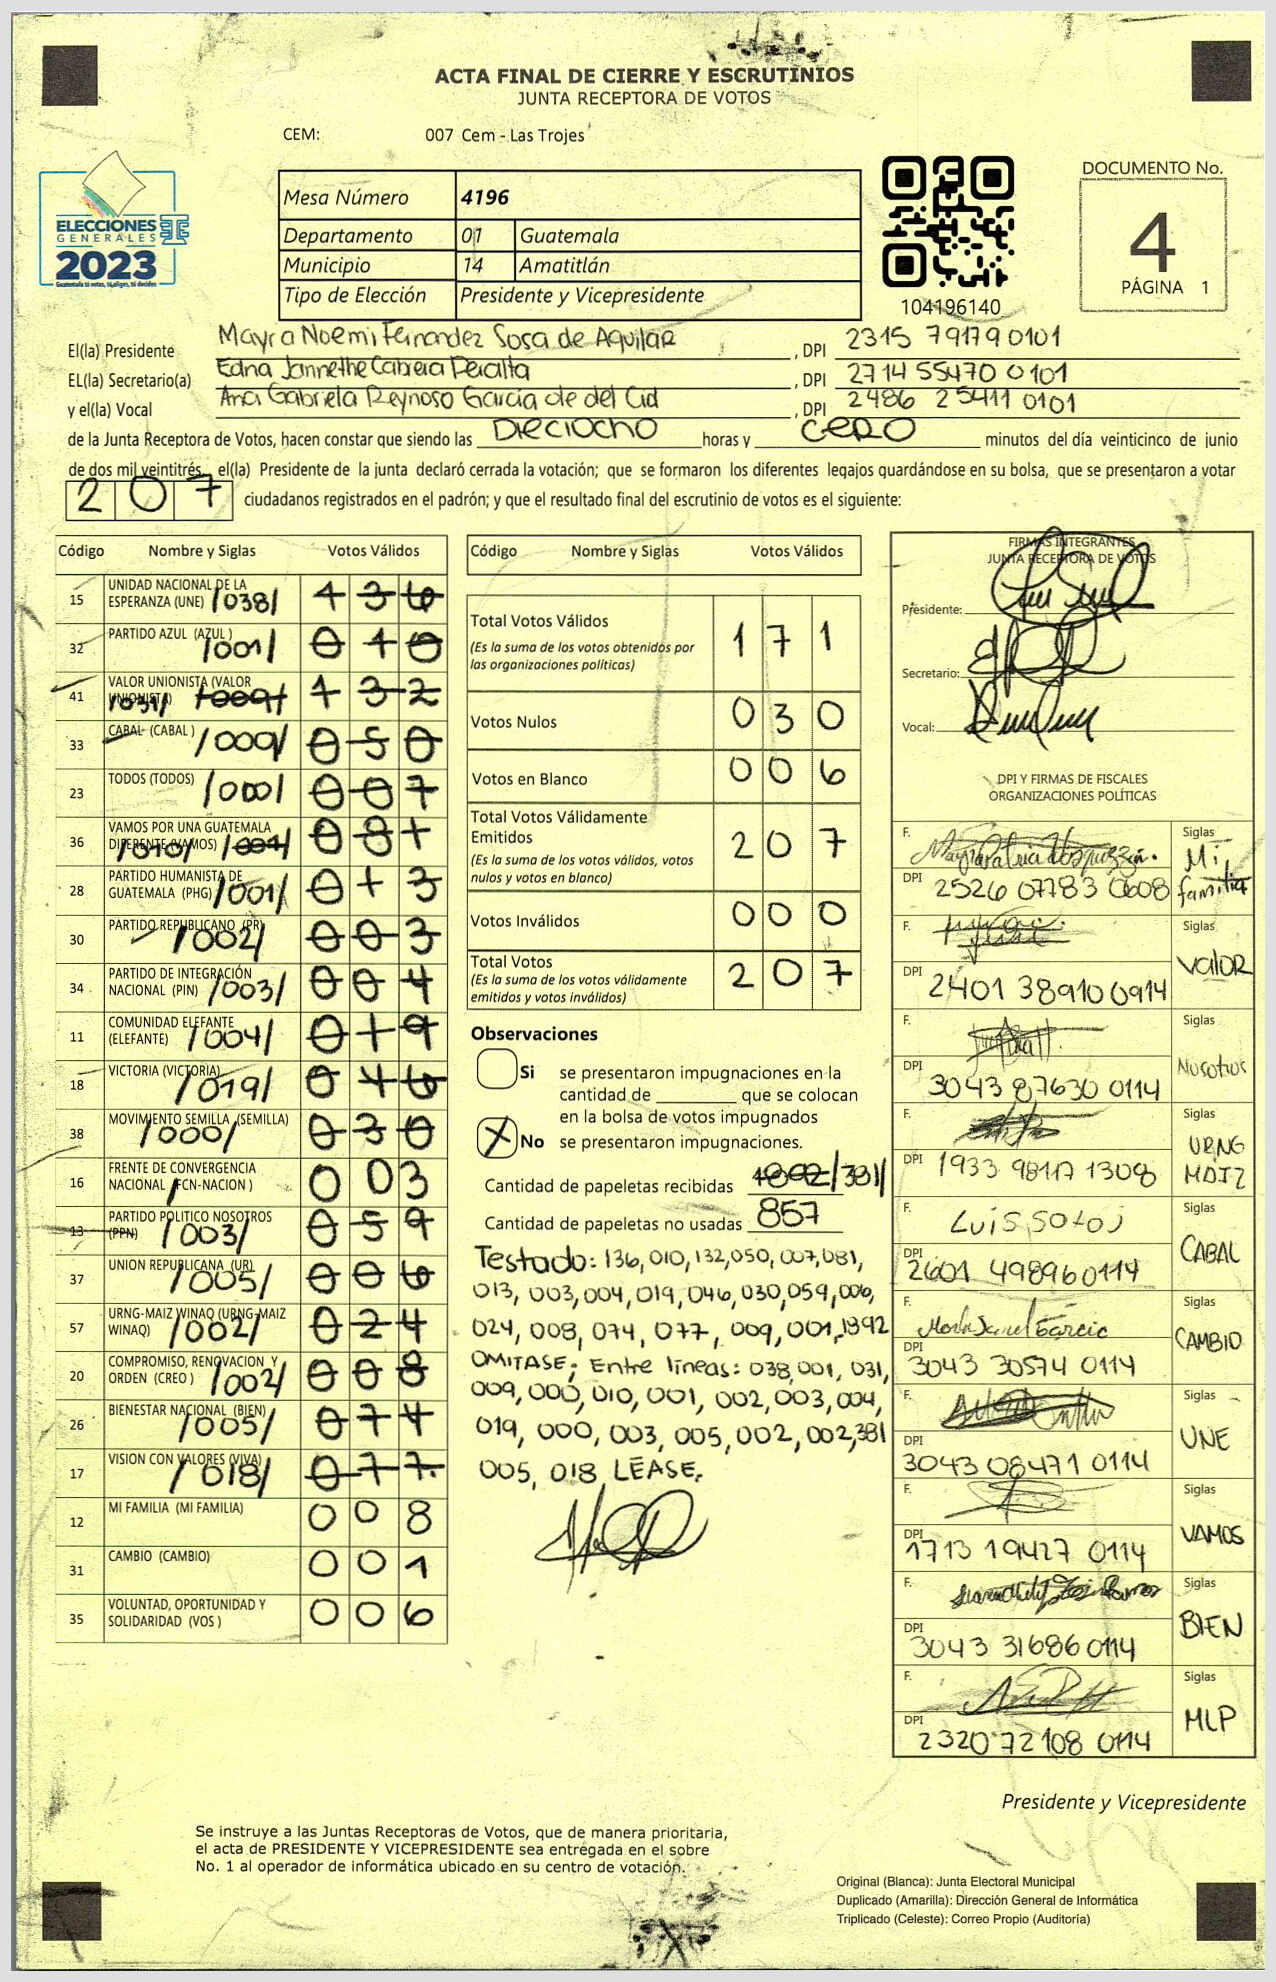 ACTA FINAL DE CIERRE Y ESCRUTINIOS
JUNTA RECEPTORA DE VOTOS
CEM: 007 Cem - Las Trojes
ELECCIONES
GENERALES
2023
Guatemala tú votas, tú eliges, tú decides
Mesa Número 4196
Departamento 01 Guatemala
Municipio 14 Amatitlán
Tipo de Elección Presidente y Vicepresidente
104196140
DOCUMENTO No.
4
PÁGINA 1
El(la) Presidente Mayra Noemi Fernandez Sosa de Aguilar , DPI 2315 79179 0101
EL(la) Secretario(a) Edna Jannethe Cabrera Peralta , DPI 2714 55470 0101
y el(la) Vocal Ana Gabriela Reynoso García de del Cid , DPI 2486 25411 0101
de la Junta Receptora de Votos, hacen constar que siendo las Dieciocho horas y cero minutos del día veinticinco de junio
de dos mil veintitrés, el(la) Presidente de la junta declaró cerrada la votación; que se formaron los diferentes legajos guardándose en su bolsa, que se presentaron a votar
207 ciudadanos registrados en el padrón; y que el resultado final del escrutinio de votos es el siguiente:
Código Nombre y Siglas Votos Válidos
15 UNIDAD NACIONAL DE LA ESPERANZA (UNE) /038/ 136
32 PARTIDO AZUL (AZUL) /001/ 010
41 VALOR UNIONISTA (VALOR UNIONISTA) /031/ /009/ 132
33 CABAL (CABAL) /009/ 050
23 TODOS (TODOS) /000/ 007
36 VAMOS POR UNA GUATEMALA DIFERENTE (VAMOS) /010/ /001/ 081
28 PARTIDO HUMANISTA DE GUATEMALA (PHG) /001/ 013
30 PARTIDO REPUBLICANO (PR) /002/ 003
34 PARTIDO DE INTEGRACIÓN NACIONAL (PIN) /003/ 004
11 COMUNIDAD ELEFANTE (ELEFANTE) /004/ 019
18 VICTORIA (VICTORIA) /019/ 046
38 MOVIMIENTO SEMILLA (SEMILLA) /000/ 030
16 FRENTE DE CONVERGENCIA NACIONAL (FCN-NACION) 003
13 PARTIDO POLITICO NOSOTROS (PPN) /003/ 059
37 UNION REPUBLICANA (UR) /005/ 006
57 URNG-MAIZ WINAQ (URNG-MAIZ WINAQ) /002/ 024
20 COMPROMISO, RENOVACION Y ORDEN (CREO) /002/ 008
26 BIENESTAR NACIONAL (BIEN) /005/ 074
17 VISION CON VALORES (VIVA) /018/ 077
12 MI FAMILIA (MI FAMILIA) 008
31 CAMBIO (CAMBIO) 001
35 VOLUNTAD, OPORTUNIDAD Y SOLIDARIDAD (VOS) 006
Código Nombre y Siglas Votos Válidos
Total Votos Válidos 171
(Es la suma de los votos obtenidos por
las organizaciones políticas)
Votos Nulos 030
Votos en Blanco 006
Total Votos Válidamente
Emitidos 207
(Es la suma de los votos válidos, votos
nulos y votos en blanco)
Votos Inválidos 000
Total Votos 207
(Es la suma de los votos válidamente
emitidos y votos inválidos)
Observaciones
Si se presentaron impugnaciones en la
cantidad de ________ que se colocan
en la bolsa de votos impugnados
X No se presentaron impugnaciones.
Cantidad de papeletas recibidas 1892/381/
Cantidad de papeletas no usadas 857
Testado: 136, 010, 132, 050, 007, 081,
013, 003, 004, 019, 046, 030, 059, 006,
024, 008, 074, 077, 009, 001, 1392
OMITASE; Entre líneas: 038, 001, 031,
009, 000, 010, 001, 002, 003, 004,
019, 000, 003, 005, 002, 002, 381
005, 018 LEASE.
FIRMAS INTEGRANTES
JUNTA RECEPTORA DE VOTOS
Presidente:
Secretario:
Vocal:
DPI Y FIRMAS DE FISCALES
ORGANIZACIONES POLÍTICAS
F. Siglas Mi familia
DPI 2526 07783 0608
F. Siglas Valor
DPI 2401 38910 0914
F. Siglas Nosotros
DPI 3043 87630 0114
F. Siglas URNG MAIZ
DPI 1933 98117 1308
F. Luis Soto Siglas CABAL
DPI 2601 49896 0114
F. Siglas CAMBIO
DPI 3043 30574 0114
F. Siglas UNE
DPI 3043 08471 0114
F. Siglas VAMOS
DPI 1713 19427 0114
F. Siglas BIEN
DPI 3043 31686 0114
F. Siglas MLP
DPI 2320 72108 0114
Presidente y Vicepresidente
Se instruye a las Juntas Receptoras de Votos, que de manera prioritaria,
el acta de PRESIDENTE Y VICEPRESIDENTE sea entregada en el sobre
No. 1 al operador de informática ubicado en su centro de votación.
Original (Blanca): Junta Electoral Municipal
Duplicado (Amarilla): Dirección General de Informática
Triplicado (Celeste): Correo Propio (Auditoría)